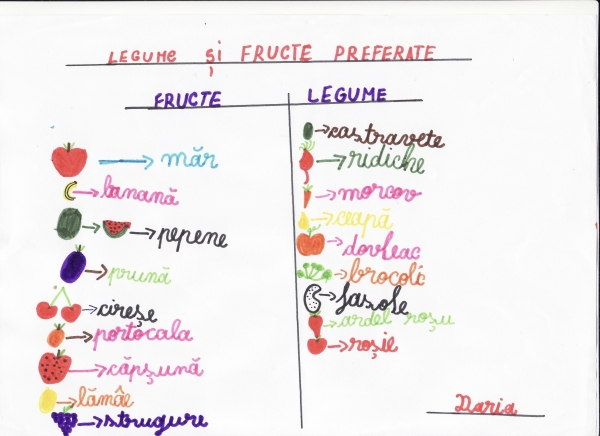 LEGUME și FRUCTE PREFERATE
FRUCTE
măr
banană
pepene
prună
cireșe
portocala
căpșună
lămâe
strugure
LEGUME
castravete
ridiche
morcov
ceapă
dovleac
brocoli
fasole
ardel roșu
roșie
Daria